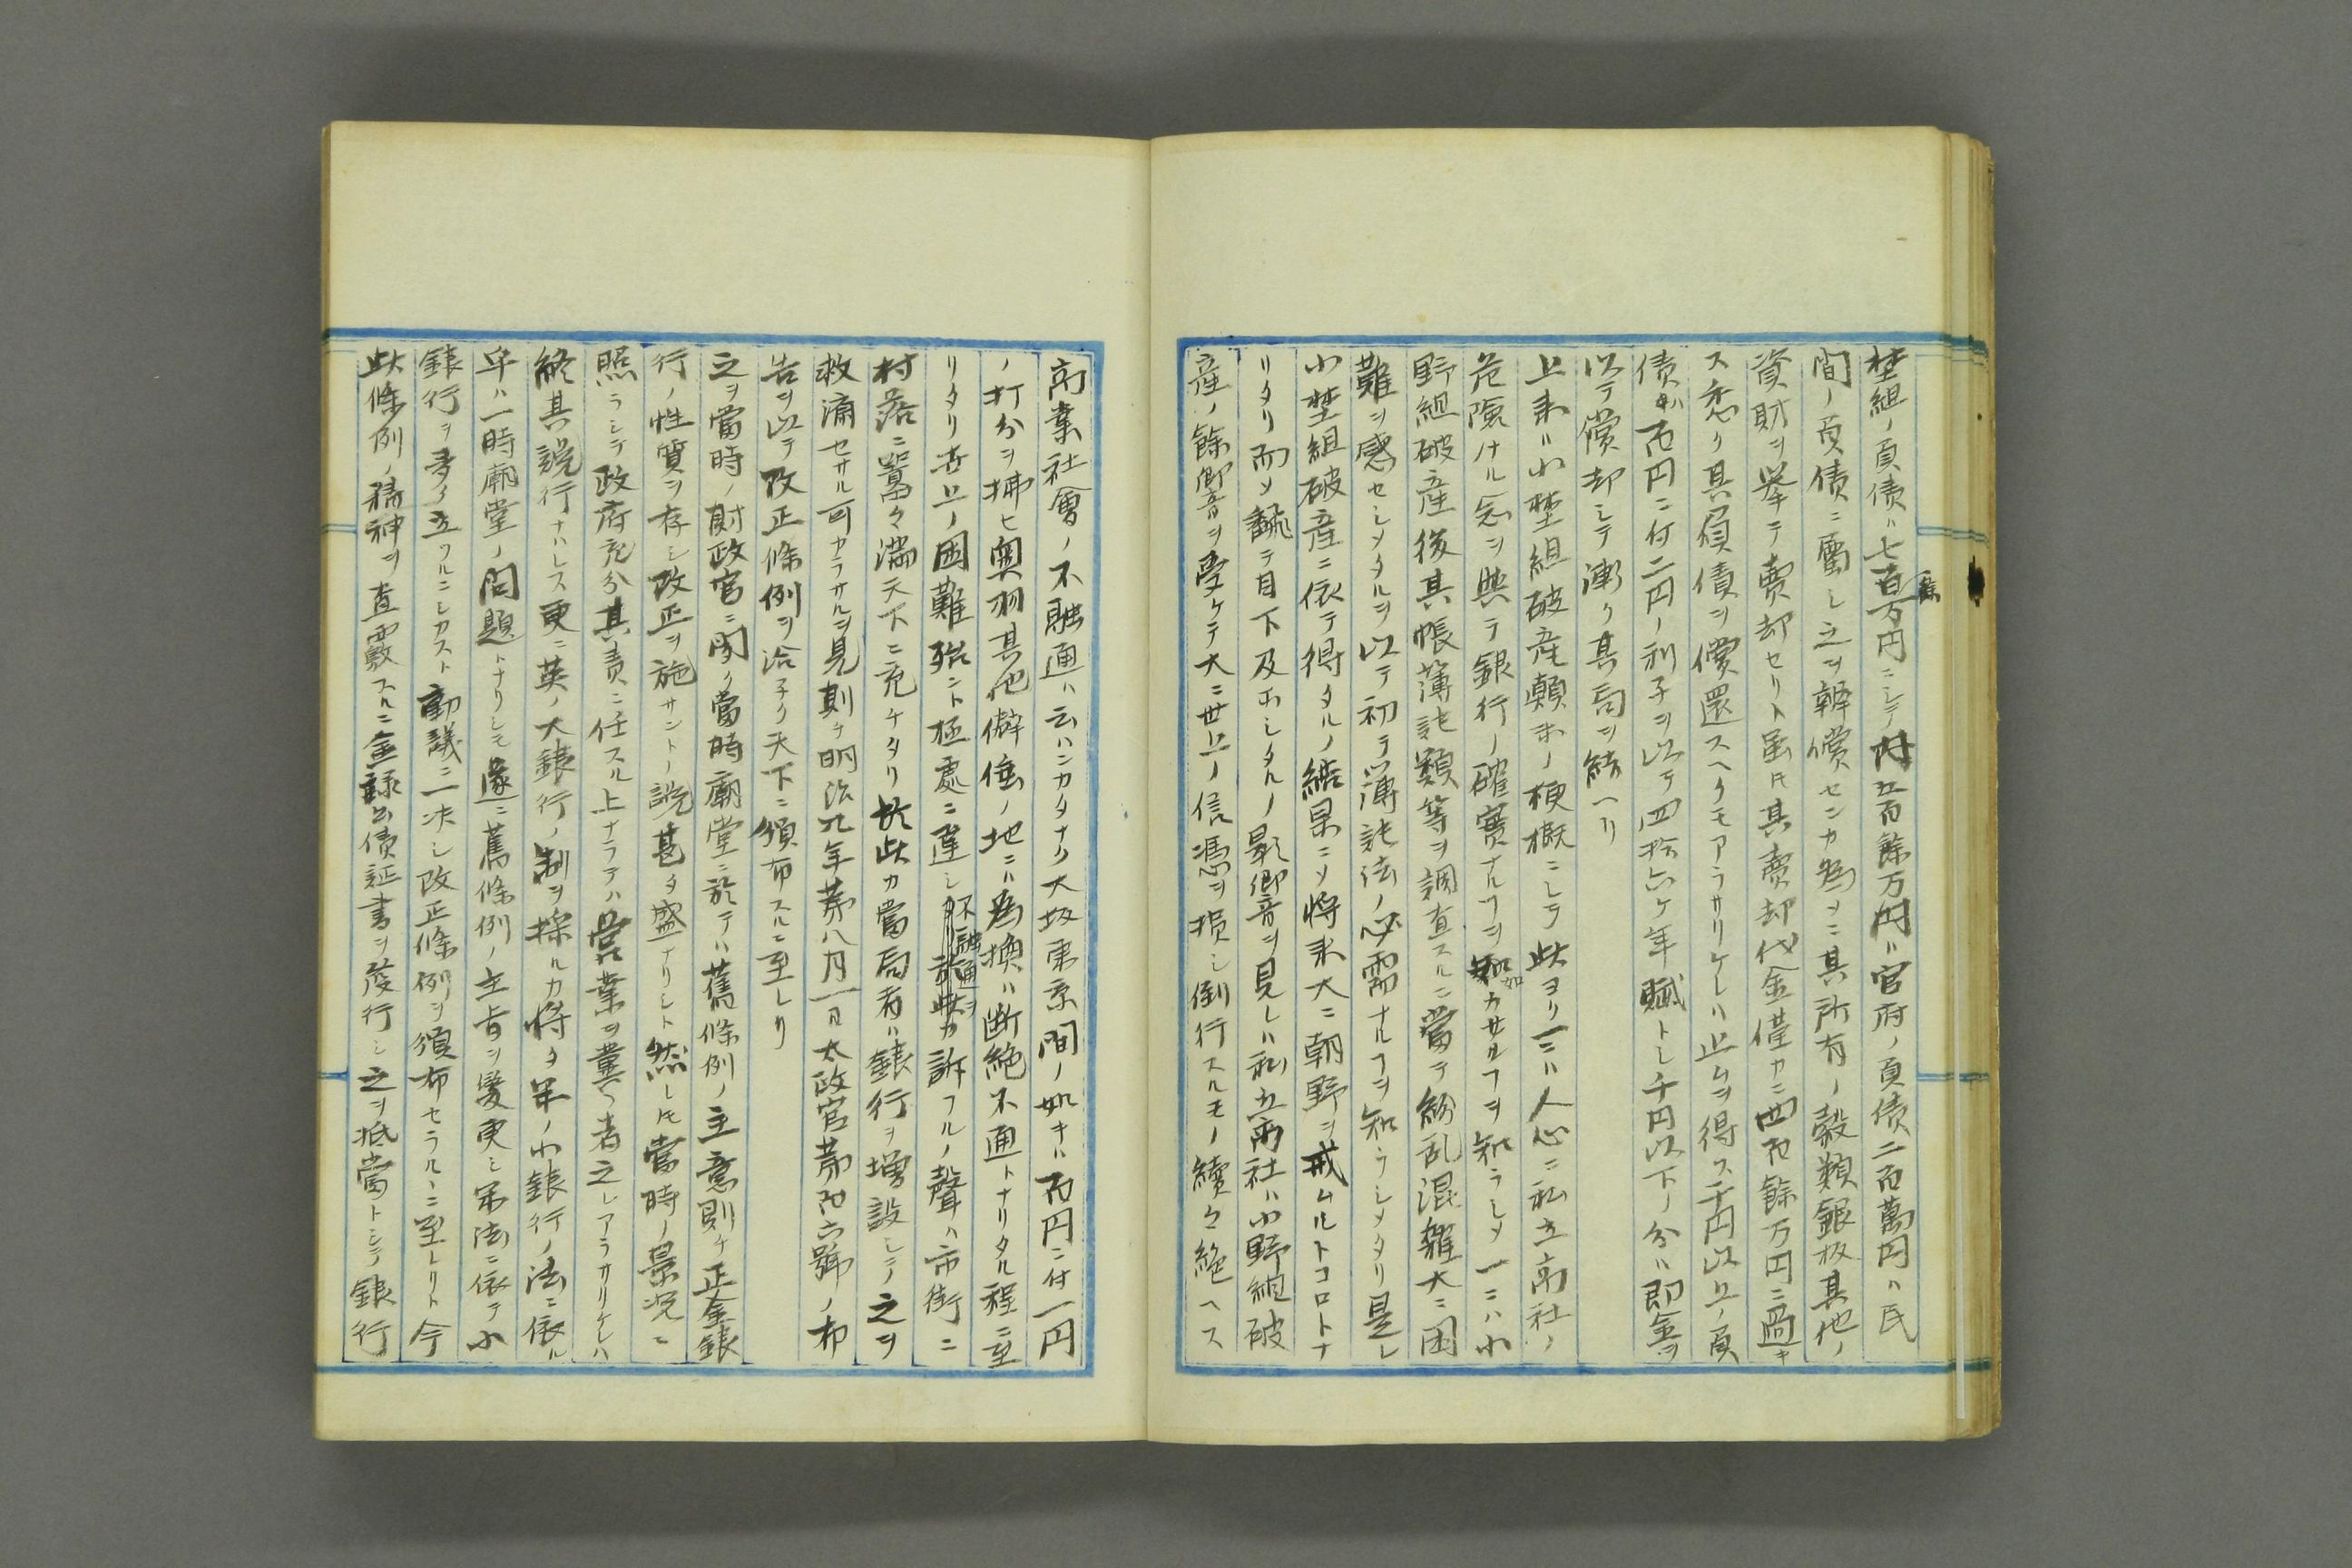 埜組ノ負債ハ七百餘万円ニシテ内五百餘万円ハ官府ノ負債二百萬円ハ民
間ノ負債ニ屬シ之ヲ辨償センカ為メニ其所有ノ穀類銀坂其他ノ
資財ヲ挙テ賣却セリト虽𪜈其賣却代金僅カニ四百餘万円ニ過キ
ス悉ク其負債ヲ償還スヘクモアラサリケレハ止ムヲ得ス千円以上ノ負
債ハ百円ニ付二円ノ利子ヲ以テ四拾六ケ年賦トシ千円以下ノ分ハ即金ヲ
以テ償却シテ漸ク其局ヲ結ヘリ
上来ハ小埜組破産顛末ノ梗概ニシテ此ヨリ一ニハ人心ニ私立商社ノ
危險ナル念ヲ與テ銀行ノ確實ナルヿヲ如カサルヿヲ知ラシメ一ニハ小
野組破産後其帳薄記類等ヲ調査スルニ當テ紛乱混雜大ニ困
難ヲ感セシメタルヲ以テ初テ薄記法ノ必需ナルヿヲ知ラシメタリ是レ
小埜組破産ニ依テ得タルノ結果ニメ将来大ニ朝野ヲ戒ムルトコロトナ
リタリ而メ飜テ目下及ホシタルノ影響ヲ見レハ私立商社ハ小野組破
産ノ餘響ヲ受ケテ大ニ世上ノ信憑ヲ損シ倒行スルモノ續々絶ヘス
商業社會ノ不融通ハ云ハンカタナク大坂東京間ノ如キハ百円ニ付一円
ノ打分ヲ拂ヒ奥羽其他僻陲ノ地ニハ為換ハ断絶不通トナリタル程ニ至
リタリ世上ノ困難殆ント極處ニ達シ不融通ヲ訴フルノ聲ハ市街ニ
村落ニ囂々満天下ニ充ケタリ於此カ當局者ハ銀行ヲ増設シテ之ヲ
救済セサル可カラサルヲ見則チ明治九年第八月一日太政官第百六號ノ布
告ヲ以テ改正條例ヲ洽子ク天下ニ頒布スルニ至レリ
之ヲ當時ノ財政官ニ聞ク當時廟堂ニ於テハ舊條例ノ主意則チ正金銀
行ノ性質ヲ存シ改正ヲ施サントノ説甚タ盛ナリシト然レ𪜈當時ノ景況ニ
照ラシテ政府充分其責ニ任スル上ナラテハ営業ヲ冀フ者之レアラサリケレハ
終其説行ナハレス更ニ英ノ大銀行ノ制ヲ採ルカ将タ米ノ小銀行ノ法ニ依ル
乎ハ一時廟堂ノ問題トナリシモ遂ニ舊條例ノ主旨ヲ變更シ米法ニ依テ小
銀行ヲ多ク立フルニシカスト動議ニ一决シ改正條例ヲ頒布セラルヽニ至レリト今
此條例ノ精神ヲ査覈スルニ金禄公債証書ヲ發行シ之ヲ抵當トシテ銀行